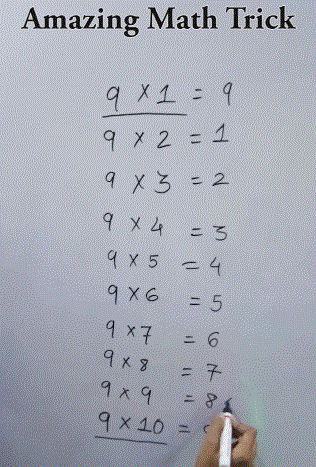 Amazing Math Trick
9 × 1 = 9
9 × 2 = 1
9 × 3 = 2
9 × 4 = 3
9 × 5 = 4
9 × 6 = 5
9 × 7 = 6
9 × 8 = 7
9 × 9 = 8
9 × 10 =